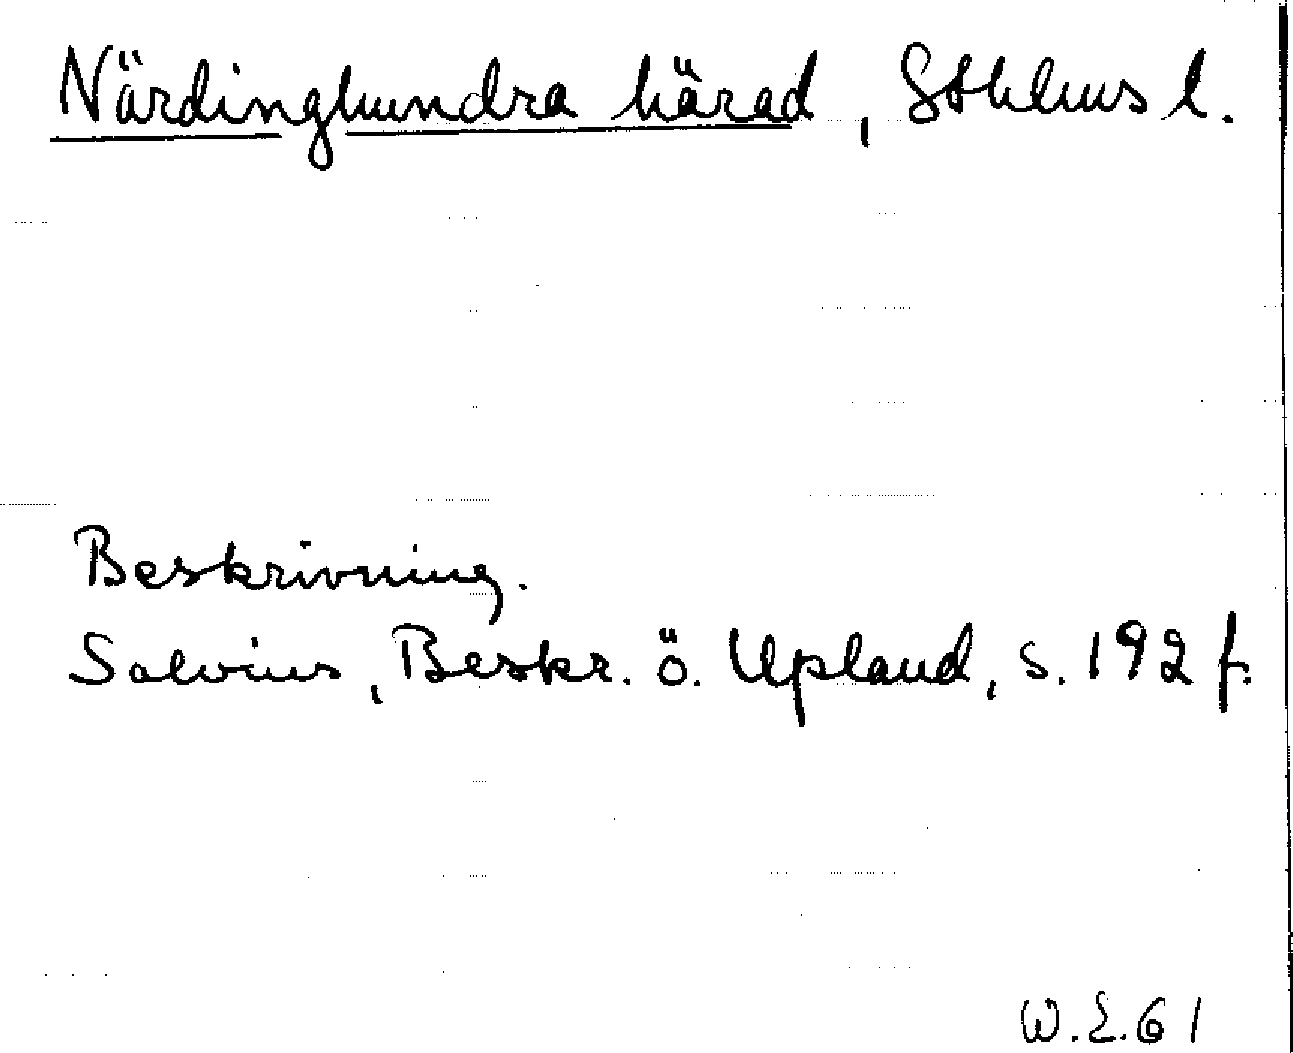 Närdinghundra härad, Sthlms l.
Beskrivning.
Salvius, Beskr. ö. Upland, s. 192 f.
W.E.61